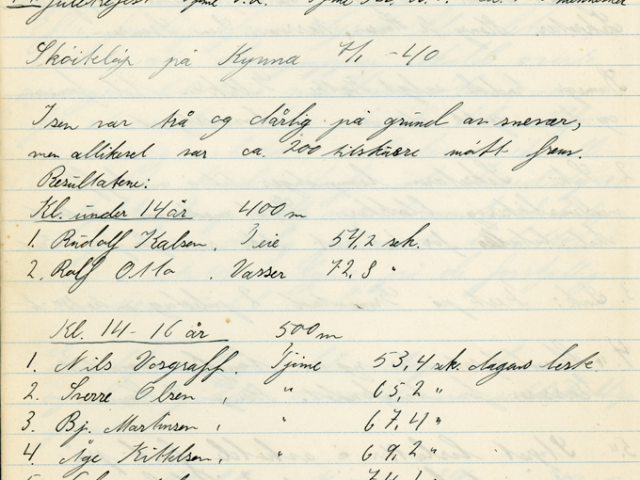 Skøiteløp på Kynna 7/1 -40
Isen var trå og dårlig på grund av snevær,
men allikevel var ca. 200 tilskuere møtt frem.
Resultatene:
Kl. under 14 år 400 m
1. Rudolf Karlsen, Teie 54,2 sek.
2. Rolf Otto . Vasser 72,8 "
Kl. 14 - 16 år 500 m
1. Nils Vorgraff. Tjøme 53,4 sek. dagens beste
2. Sverre Olsen , " 65,2 "
3. Bj. Martinsen , " 67,4 "
4. Åge Kittelsen, " 69,2 "